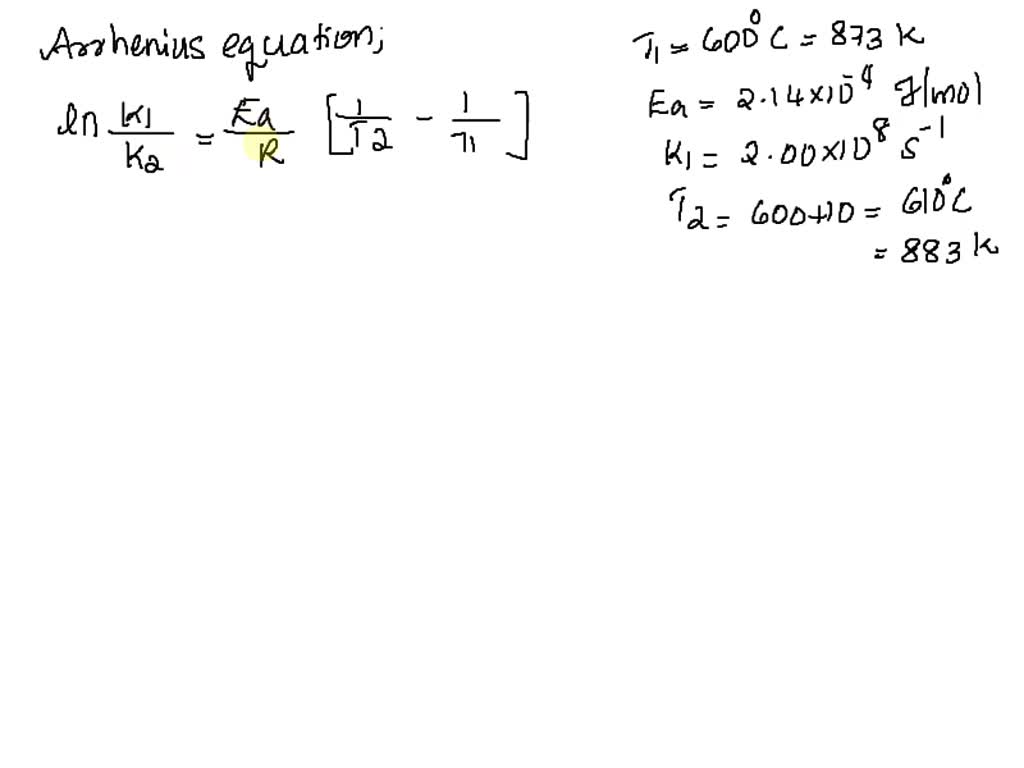 Arrhenius equation;
ln K1/K2 = Ea/R [1/T2 - 1/T1]
T1 = 600°C = 873 K
Ea = 2.14×10^-4 J/mol
K1 = 2.00×10^8 S^-1
T2 = 600+10 = 610°C
= 883 K